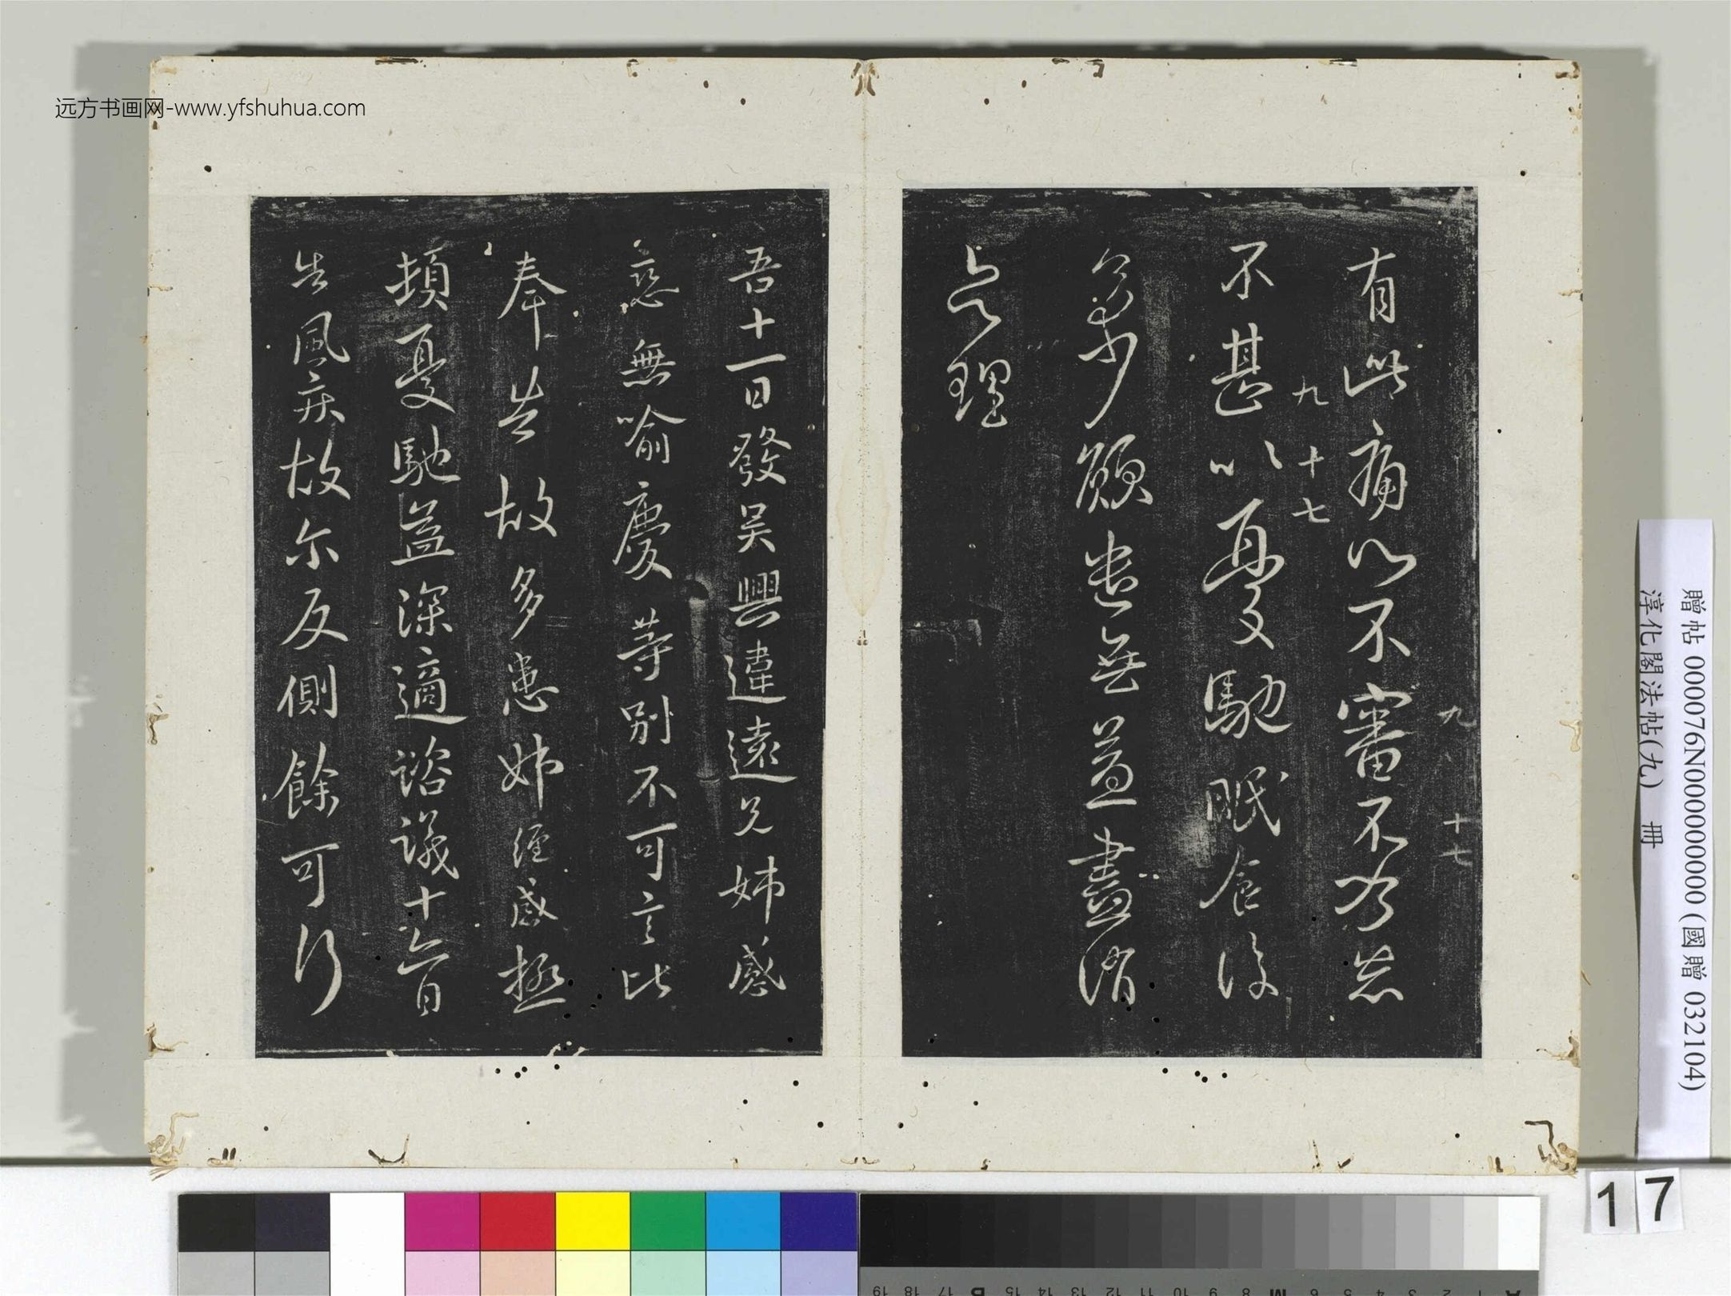 九 十七
有此痛以不審不
不甚以憂馳眠食復
九 十七
少願無益盡消
之理
吾十一日發吳興違遠兄姊感
戀無喻慶等別不可言比
奉告故多患姊經感極
頓憂馳益深適諮議十六日
告風疾故尔反側餘可行
远方书画网-www.yfshuhua.com
贈帖 000076N000000000 (國贈 032104)
淳化閣法帖(九) 冊
17